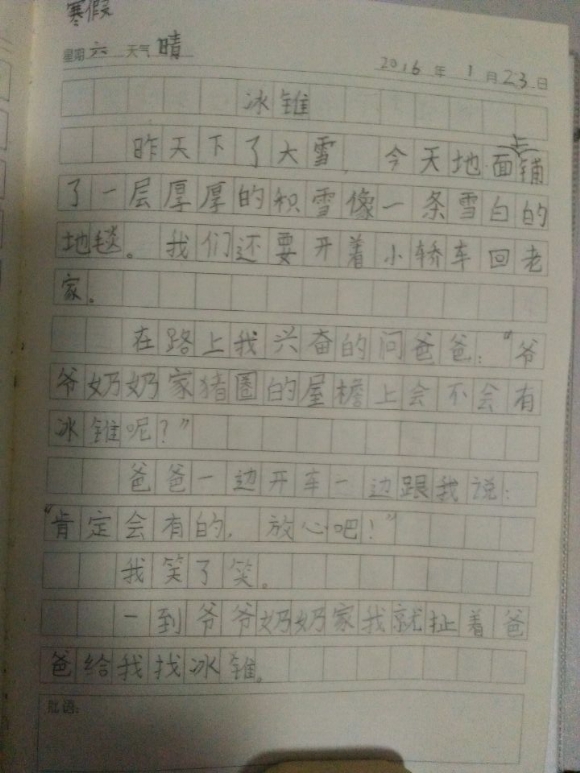 寒假
星期六 天气晴 2016年1月23日
冰锥
昨天下了大雪，今天地上面铺
了一层厚厚的积雪像一条雪白的
地毯。我们还要开着小轿车回老
家。
在路上我兴奋的问爸爸：“爷
爷奶奶家猪圈的屋檐上会不会有
冰锥呢？”
爸爸一边开车一边跟我说：
“肯定会有的，放心吧！”
我笑了笑。
一到爷爷奶奶家我就扯着爸
爸给我找冰锥。
批语：